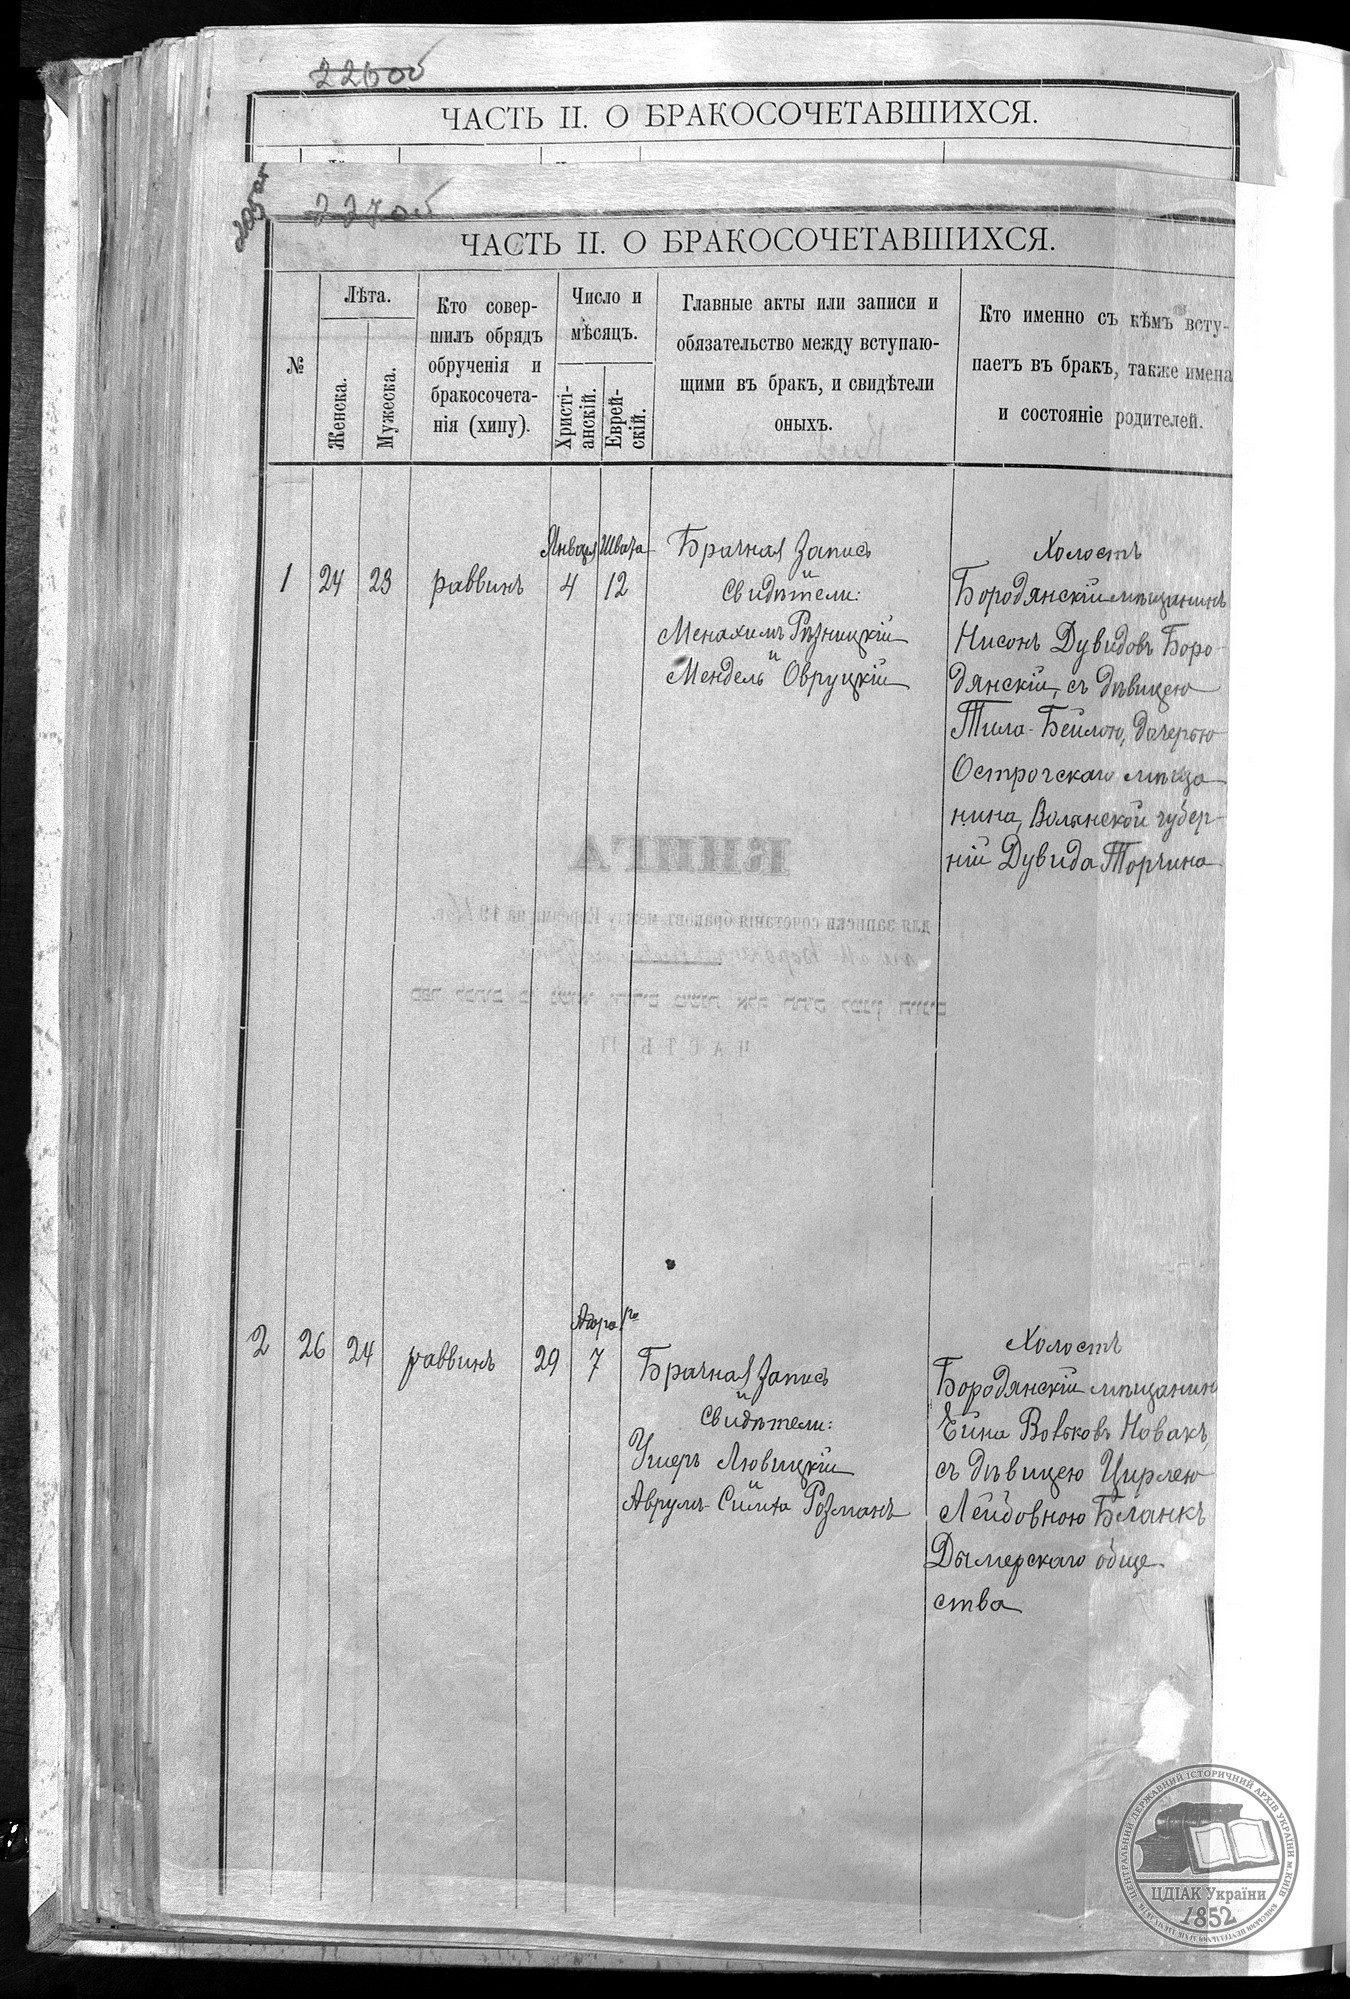 226об
ЧАСТЬ II. О БРАКОСОЧЕТАВШИХСЯ.
205об
227об
ЧАСТЬ II. О БРАКОСОЧЕТАВШИХСЯ.
№
Лѣта.
Женска.
Мужеска.
Кто совер-
шилъ обрядъ
обрученія и
бракосочета-
нія (хипу).
Число и
мѣсяцъ.
Христі-
анскій.
Еврей-
скій.
Главные акты или записи и
обязательство между вступаю-
щими въ бракъ, и свидѣтели
оныхъ.
Кто именно съ кѣмъ всту-
паетъ въ бракъ, также имена
и состояніе родителей.
1
24
23
раввинъ
Января
4
Швата
12
Брачная запись
и
Свидѣтели:
Менахимъ Рѣзницкій
и
Мендель Овруцкій
Холостъ
Бородянскій мѣщанинъ
Нисонъ Дувидовъ Боро-
дянскій, съ дѣвицею
Тила-Бейлою, дочерью
Острогскаго мѣща-
нина, Волынской губер-
ніи Дувида Торчина
КНИГА
для записки сочетанія браковъ между Евреями на 19
ЧАСТЬ II
2
26
24
раввинъ
29
Адара 1го
7
Брачная запись
и
Свидѣтели:
Ушеръ Лювицкій
и
Аврумъ-Симха Розманъ
Холостъ
Бородянскій мѣщанинъ
Ейна Вовковъ Новакъ,
съ дѣвицею Цирлею
Лейбовною Бланкъ
Дымерскаго обще-
ства
ЦЕНТРАЛЬНИЙ ДЕРЖАВНИЙ ІСТОРИЧНИЙ АРХІВ УКРАЇНИ М. КИЇВ
ЦДІАК України
1852